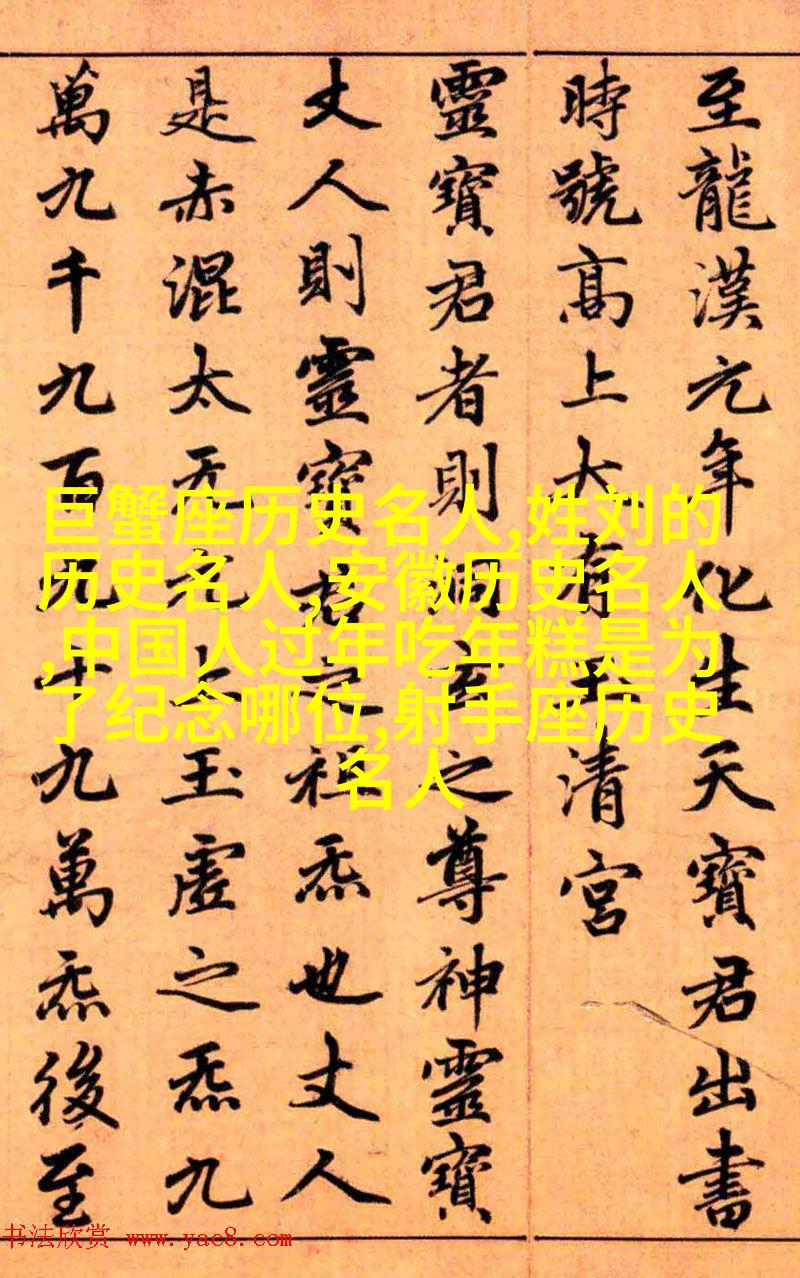 至龍漢元年化生天寶君出書
時號高上大有玉清宮
靈寶君者則洞玄之尊神靈寶
丈人則靈寶君之祖炁也丈人
是赤混太无元上玉虛之炁九
萬九千九百九十九萬炁後至
巨蟹座历史名人,姓刘的
历史名人,安徽历史名人
,中国人过年吃年糕是为
了纪念哪位,射手座历史
名人
书法欣赏 www.yac8.com